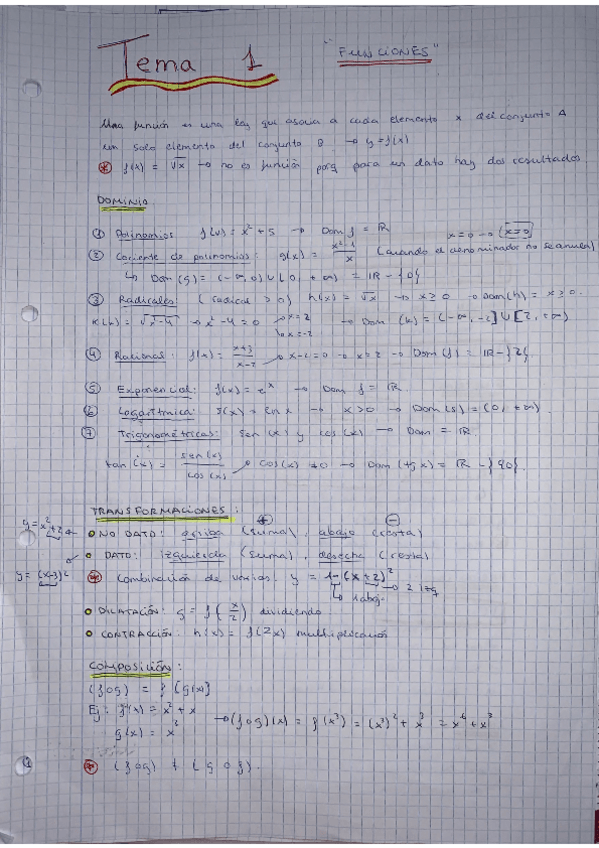 Tema 1 "FUNCIONES"
Una función es una ley que asocia a cada elemento x del conjunto A
un solo elemento del conjunto B → y = f(x)
* f(x) = √x → no es función porq para un dato hay dos resultados.
DOMINIO
① Polinomios: f(x) = x² + 5 → Dom f = ℝ
x = 0 → x = 0
② Cociente de polinomios: g(x) = (x²-1)/x (cuando el denominador no se anula)
↳ Dom (g) = (-∞, 0) ∪ (0, +∞) = ℝ - {0}
③ Radicales (radical > 0) h(x) = √x → x ≥ 0 → Dom(h) = x ≥ 0.
k(x) = √x²-4 → x² - 4 = 0 → x = 2 x = -2 → Dom (k) = (-∞, -2] ∪ [2, +∞)
④ Racional: f(x) = (x+3)/(x-2) → x - 2 = 0 → x = 2 → Dom (f) = ℝ - {2}.
⑤ Exponencial: f(x) = eˣ → Dom f = ℝ.
⑥ Logarítmica: f(x) = ln x → x > 0 → Dom (f) = (0, +∞)
⑦ Trigonométricas: sen (x) y cos (x) → Dom = ℝ.
tan (x) = sen(x)/cos(x) → cos(x) ≠ 0 → Dom (tg x) = ℝ - {90}.
TRANSFORMACIONES: + -
y = x² + 2 ← NO DATO: arriba (suma), abajo (resta)
DATO: izquierda (suma), derecha (resta)
y = (x-3)²
* Combinación de varios. y = 1 - (x + 2)² → 2 izq
↳ 1 abj.
DILATACIÓN: g = f(x/2) dividiendo
CONTRACCIÓN: h(x) = f(2x) multiplicación
COMPOSICIÓN:
(f o g) = f [g(x)]
Ej: f(x) = x² + x
g(x) = x³ → (f o g)(x) = f(x³) = (x³)² + x³ = x⁶ + x³
* (f o g) ≠ (g o f).